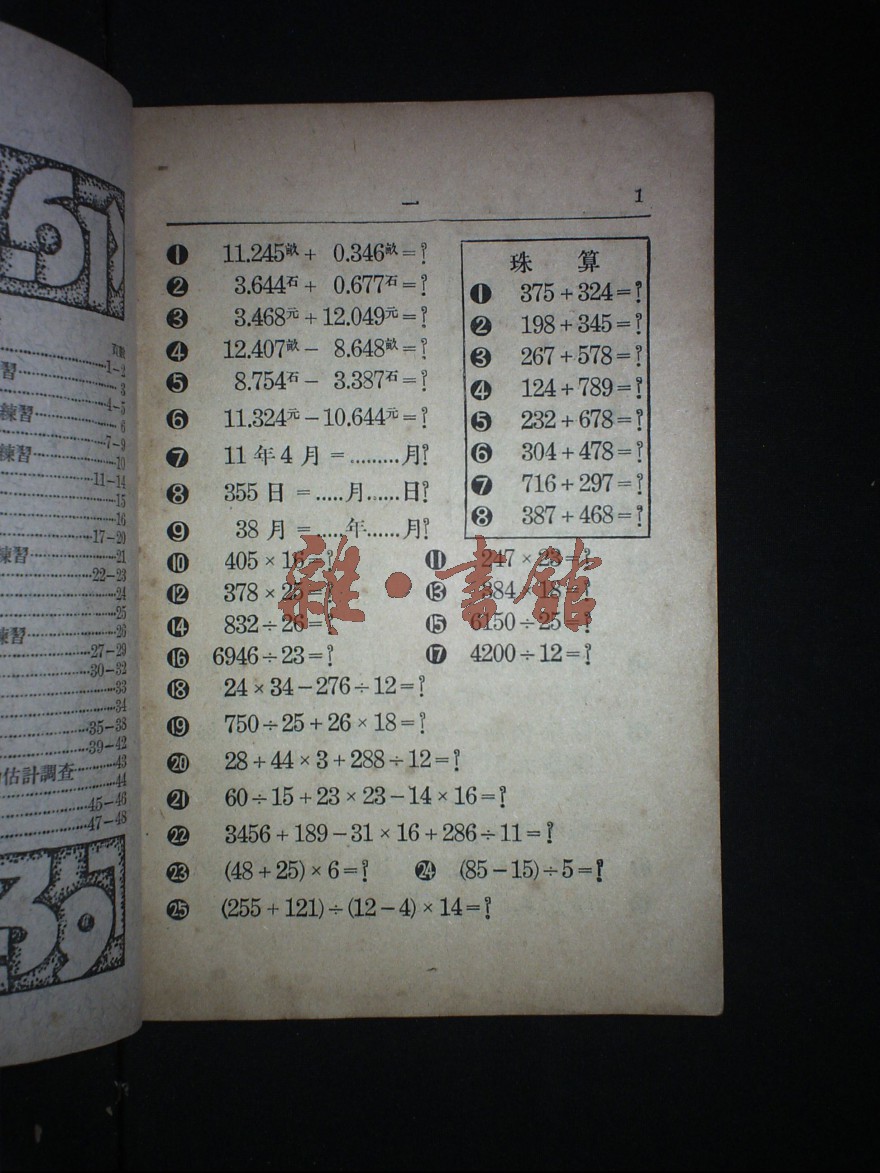 頁數
習……1-2
3
4-5
練習……6
7-9
練習……10
11-14
15
16
17-20
練習……21
22-23
24
25
練習……26
27-29
30-32
33
34
35-38
39-42
估計調查……43
44
45-46
47-48
一 1
❶ 11.245畝 + 0.346畝 = ?
❷ 3.644石 + 0.677石 = ?
❸ 3.468元 + 12.049元 = ?
❹ 12.407畝 − 8.648畝 = ?
❺ 8.754石 − 3.387石 = ?
❻ 11.324元 − 10.644元 = ?
❼ 11 年 4 月 = ………月?
❽ 355 日 = ……月……日?
❾ 38 月 = ……年……月?
珠 算
❶ 375 + 324 = ?
❷ 198 + 345 = ?
❸ 267 + 578 = ?
❹ 124 + 789 = ?
❺ 232 + 678 = ?
❻ 304 + 478 = ?
❼ 716 + 297 = ?
❽ 387 + 468 = ?
❿ 405 × 16 = ? ⓫ 247 × 23 = ?
⓬ 378 × 25 = ? ⓭ 84 × 18 = ?
⓮ 832 ÷ 26 = ? ⓯ 6150 ÷ 25 = ?
⓰ 6946 ÷ 23 = ? ⓱ 4200 ÷ 12 = ?
⓲ 24 × 34 − 276 ÷ 12 = ?
⓳ 750 ÷ 25 + 26 × 18 = ?
⓴ 28 + 44 × 3 + 288 ÷ 12 = ?
21 60 ÷ 15 + 23 × 23 − 14 × 16 = ?
22 3456 + 189 − 31 × 16 + 286 ÷ 11 = ?
23 (48 + 25) × 6 = ? 24 (85 − 15) ÷ 5 = ?
25 (255 + 121) ÷ (12 − 4) × 14 = ?
雜·書館